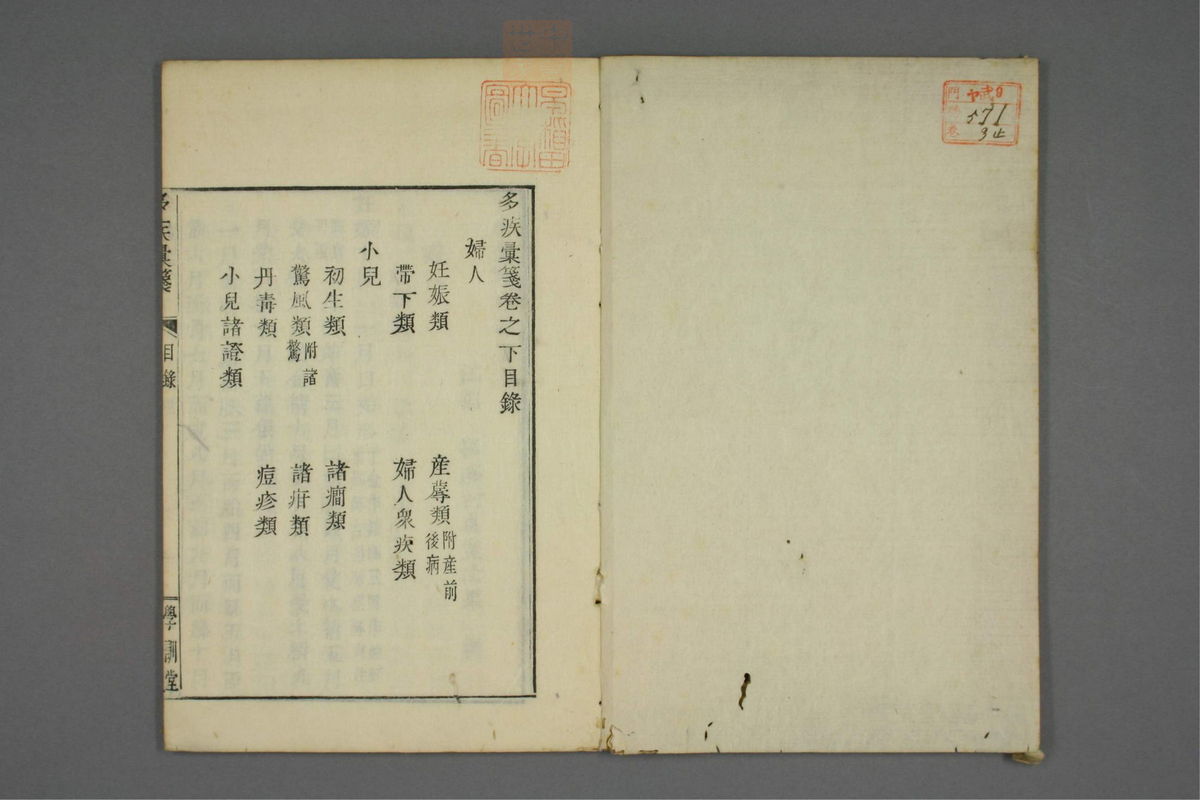 多疾彙箋卷之下目錄
婦人
妊娠類
產蓐類附產前後病
帶下類
婦人衆疾類
小兒
初生類
諸癇類
驚風類附諸驚
諸疳類
丹毒類
痘疹類
小兒諸證類
多疾彙箋
目錄
學訓堂
門
卷
571
3止